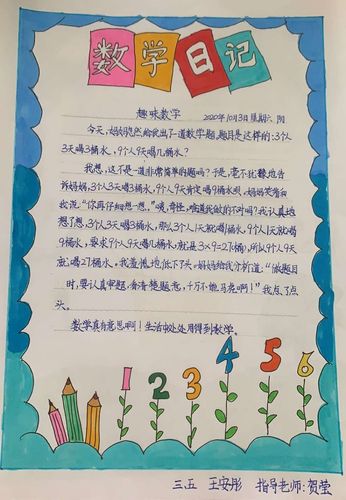 数学日记
趣味数学 2020年10月3日 星期六 阴
今天,妈妈突然给我出了一道数学题,题目是这样的:3个人
3天喝3桶水,9个人9天喝几桶水?
我想,这不是一道非常简单的题吗?于是,毫不犹豫地告
诉妈妈,3个人3天喝3桶水,9个人9天肯定喝9桶水呗,妈妈笑着向
我说:“你再仔细想一想。”咦,奇怪,难道我做的不对吗?我认真地
想了想,3个人3天喝3桶水,那么3个人1天就喝1桶水,9个人1天就喝
3桶水,要求9个人9天喝几桶水,就是3×9=27(桶),所以9个人9天
就喝27桶水。我羞愧地低下了头,妈妈给我分析道:“做题目
时,要认真审题,看清楚题意,千万不能马虎啊!”我点了点
头。
数学真有意思啊!生活中处处用得到数学。
1 2 3 4 5 6
三.五 王安彤 指导老师:贺莹